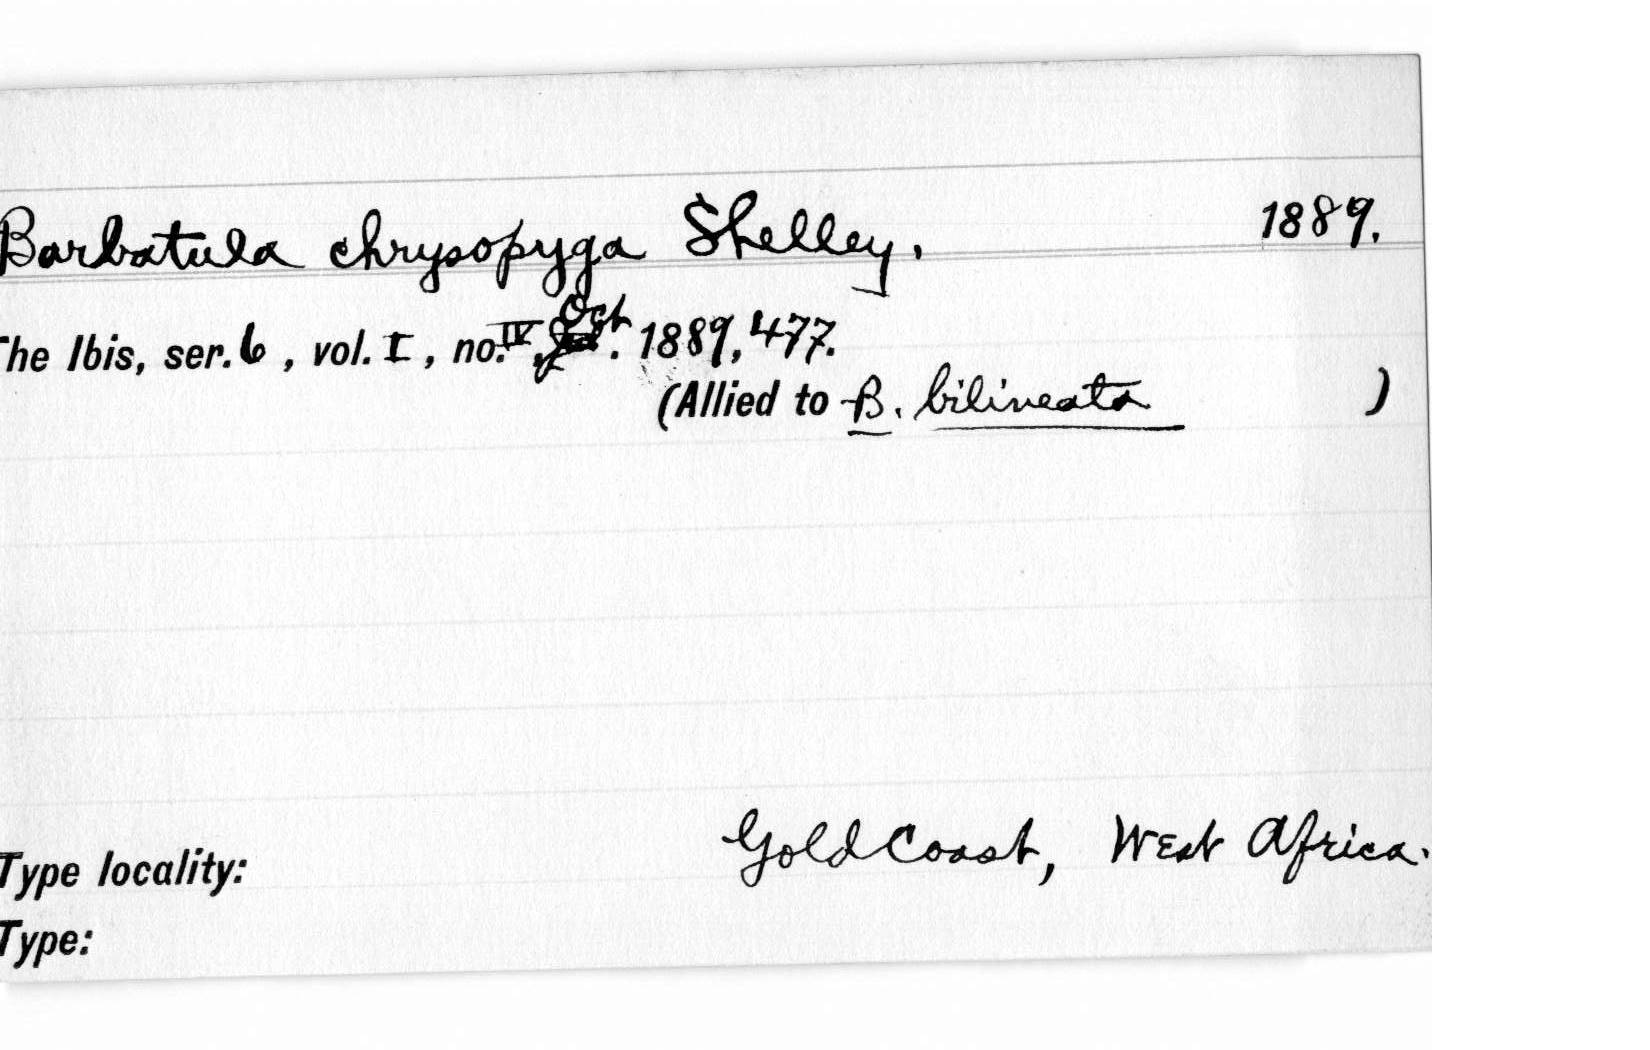 Barbatula chrysopyga Shelley. 1889.
The Ibis, ser. 6, vol. I, no. IV, Oct. 1889, 477.
(Allied to B. bilineata )
Type locality: Gold Coast, West Africa.
Type: